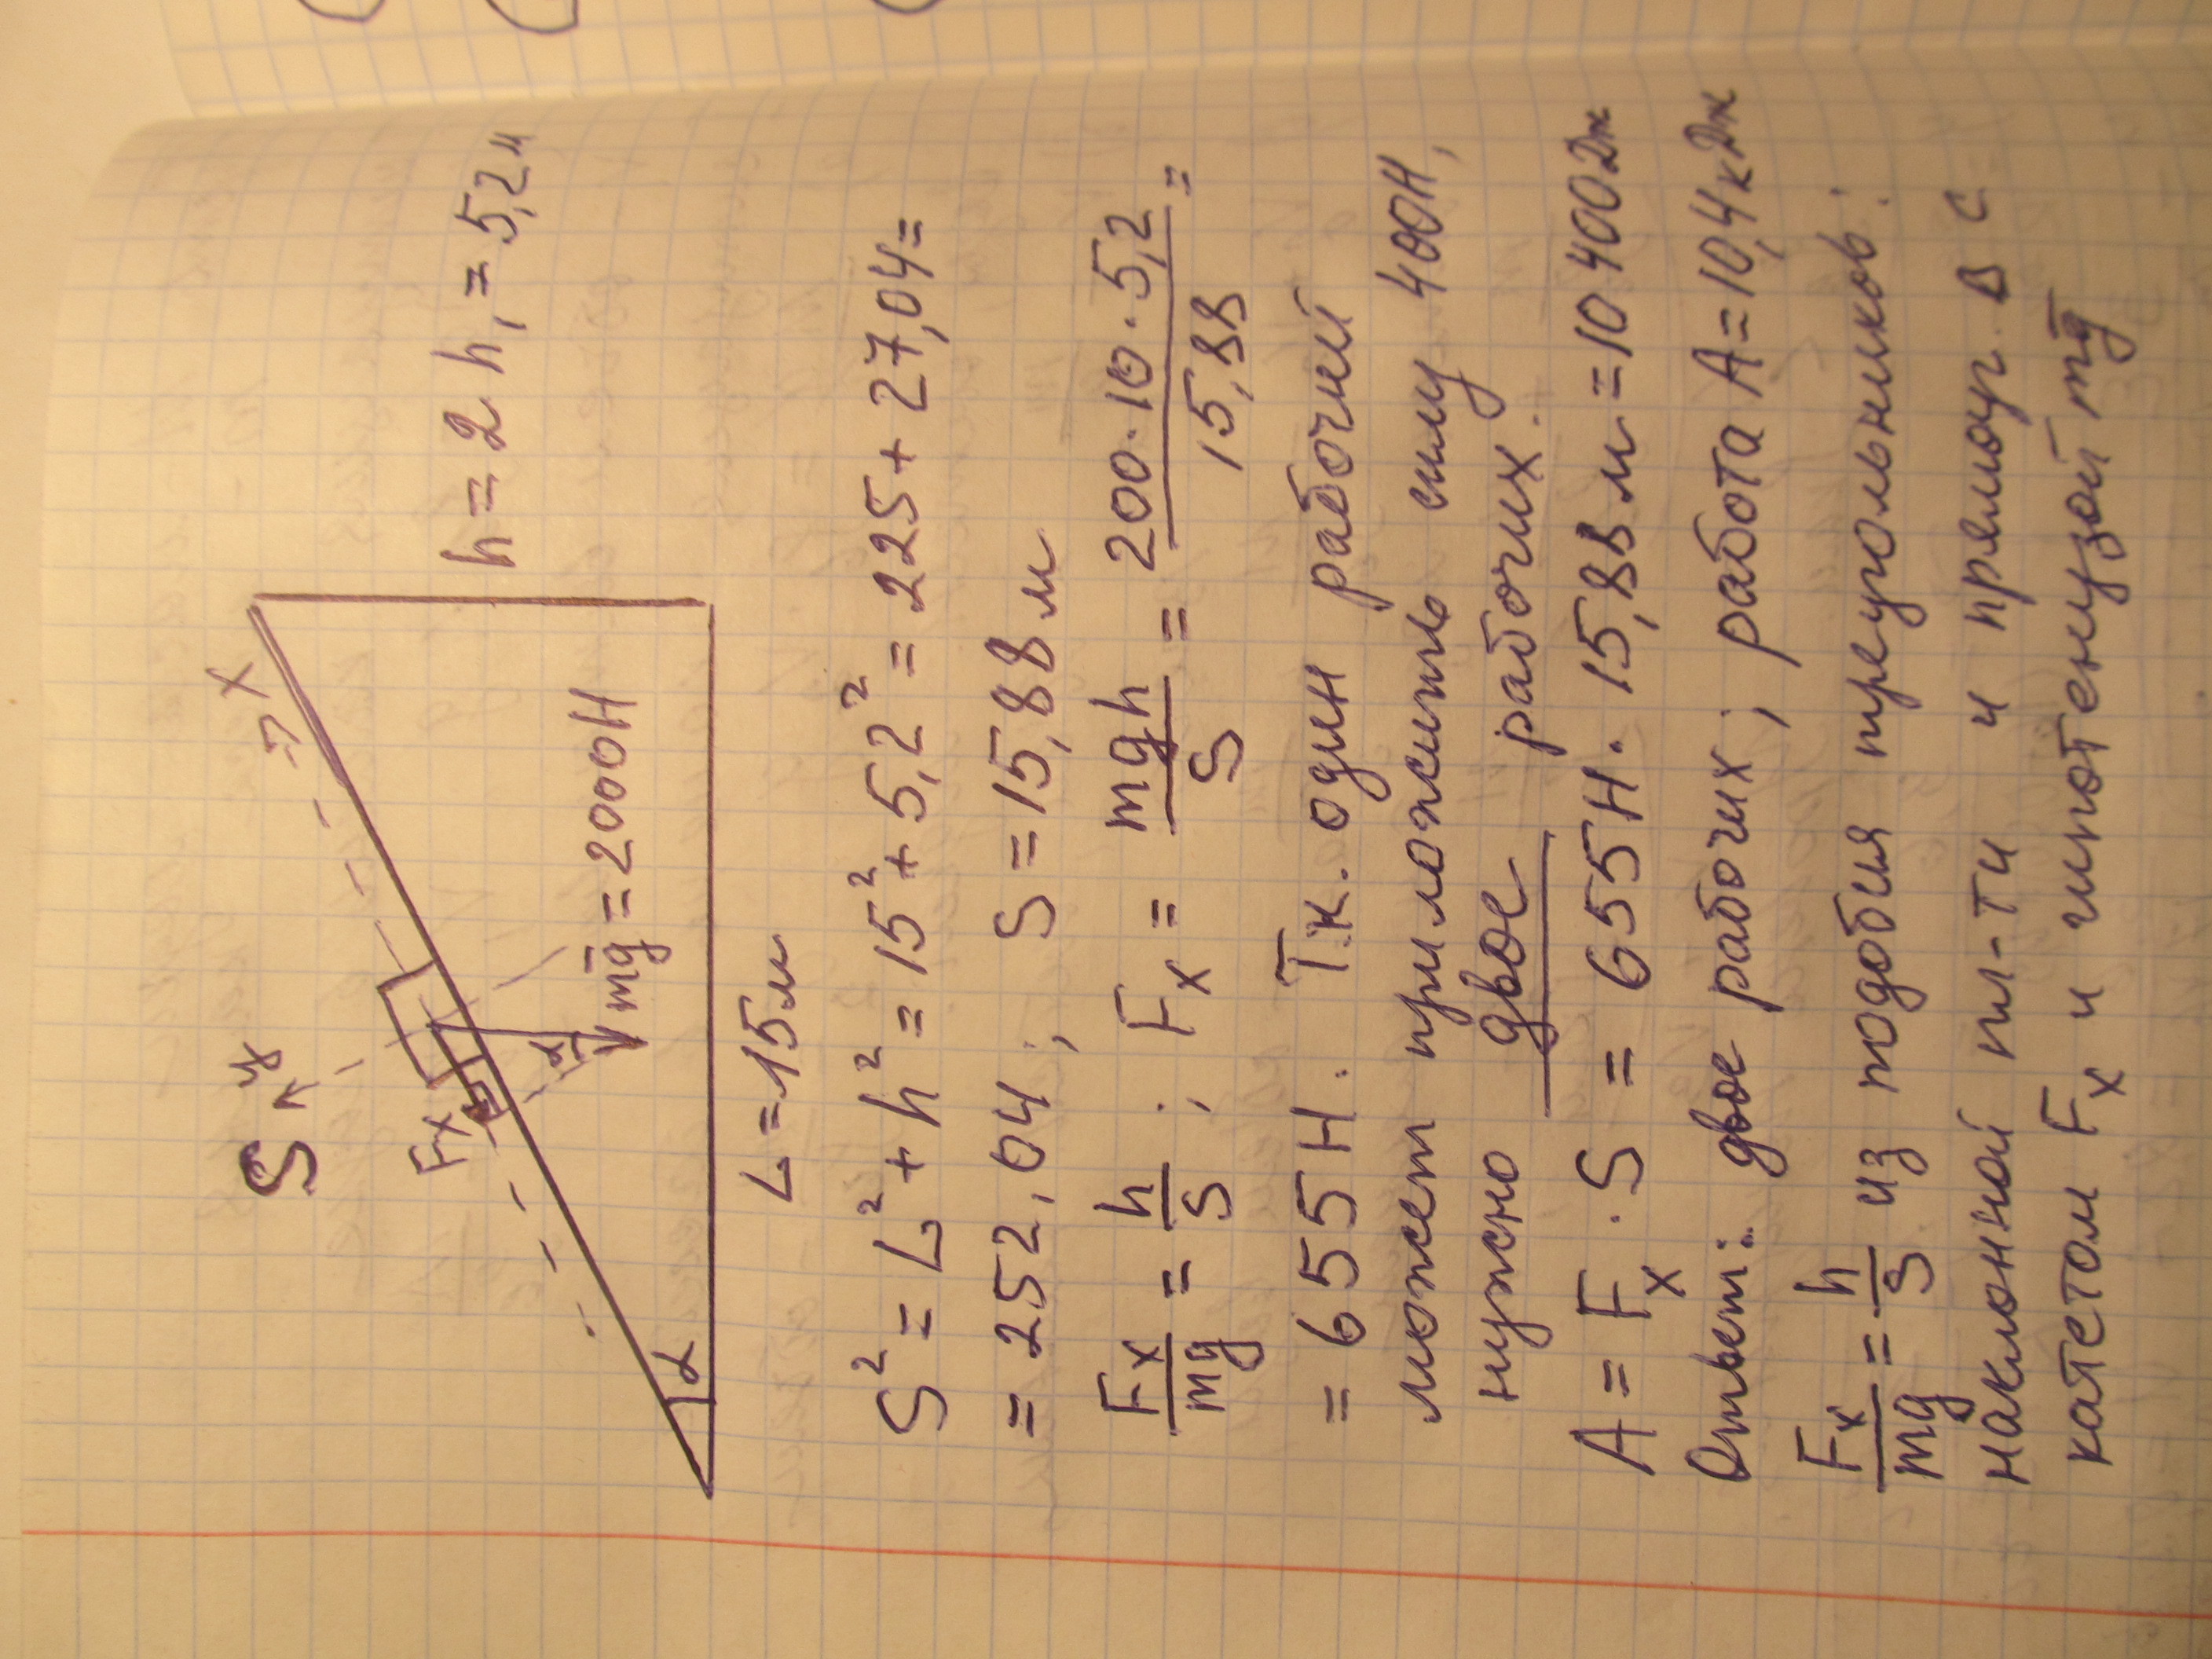 S y
x
Fx
α
mg = 2000Н
h = 2 h₁ = 5,2м
α
L = 15м
S² = L² + h² = 15² + 5,2² = 225 + 27,04 =
= 252,04 ; S = 15,88 м
Fx/mg = h/S ; Fx = mgh/S = 200·10·5,2/15,88 =
= 655 Н. Т.к. один рабочий
может приложить силу 400Н,
нужно двое рабочих.
A = Fx · S = 655Н · 15,88 м = 10 400Дж
Ответ: двое рабочих ; работа A = 10,4 кДж
Fx/mg = h/S из подобия треугольников:
наклонной пл-ти и прямоуг. Δ с
катетом Fx и гипотенузой mg